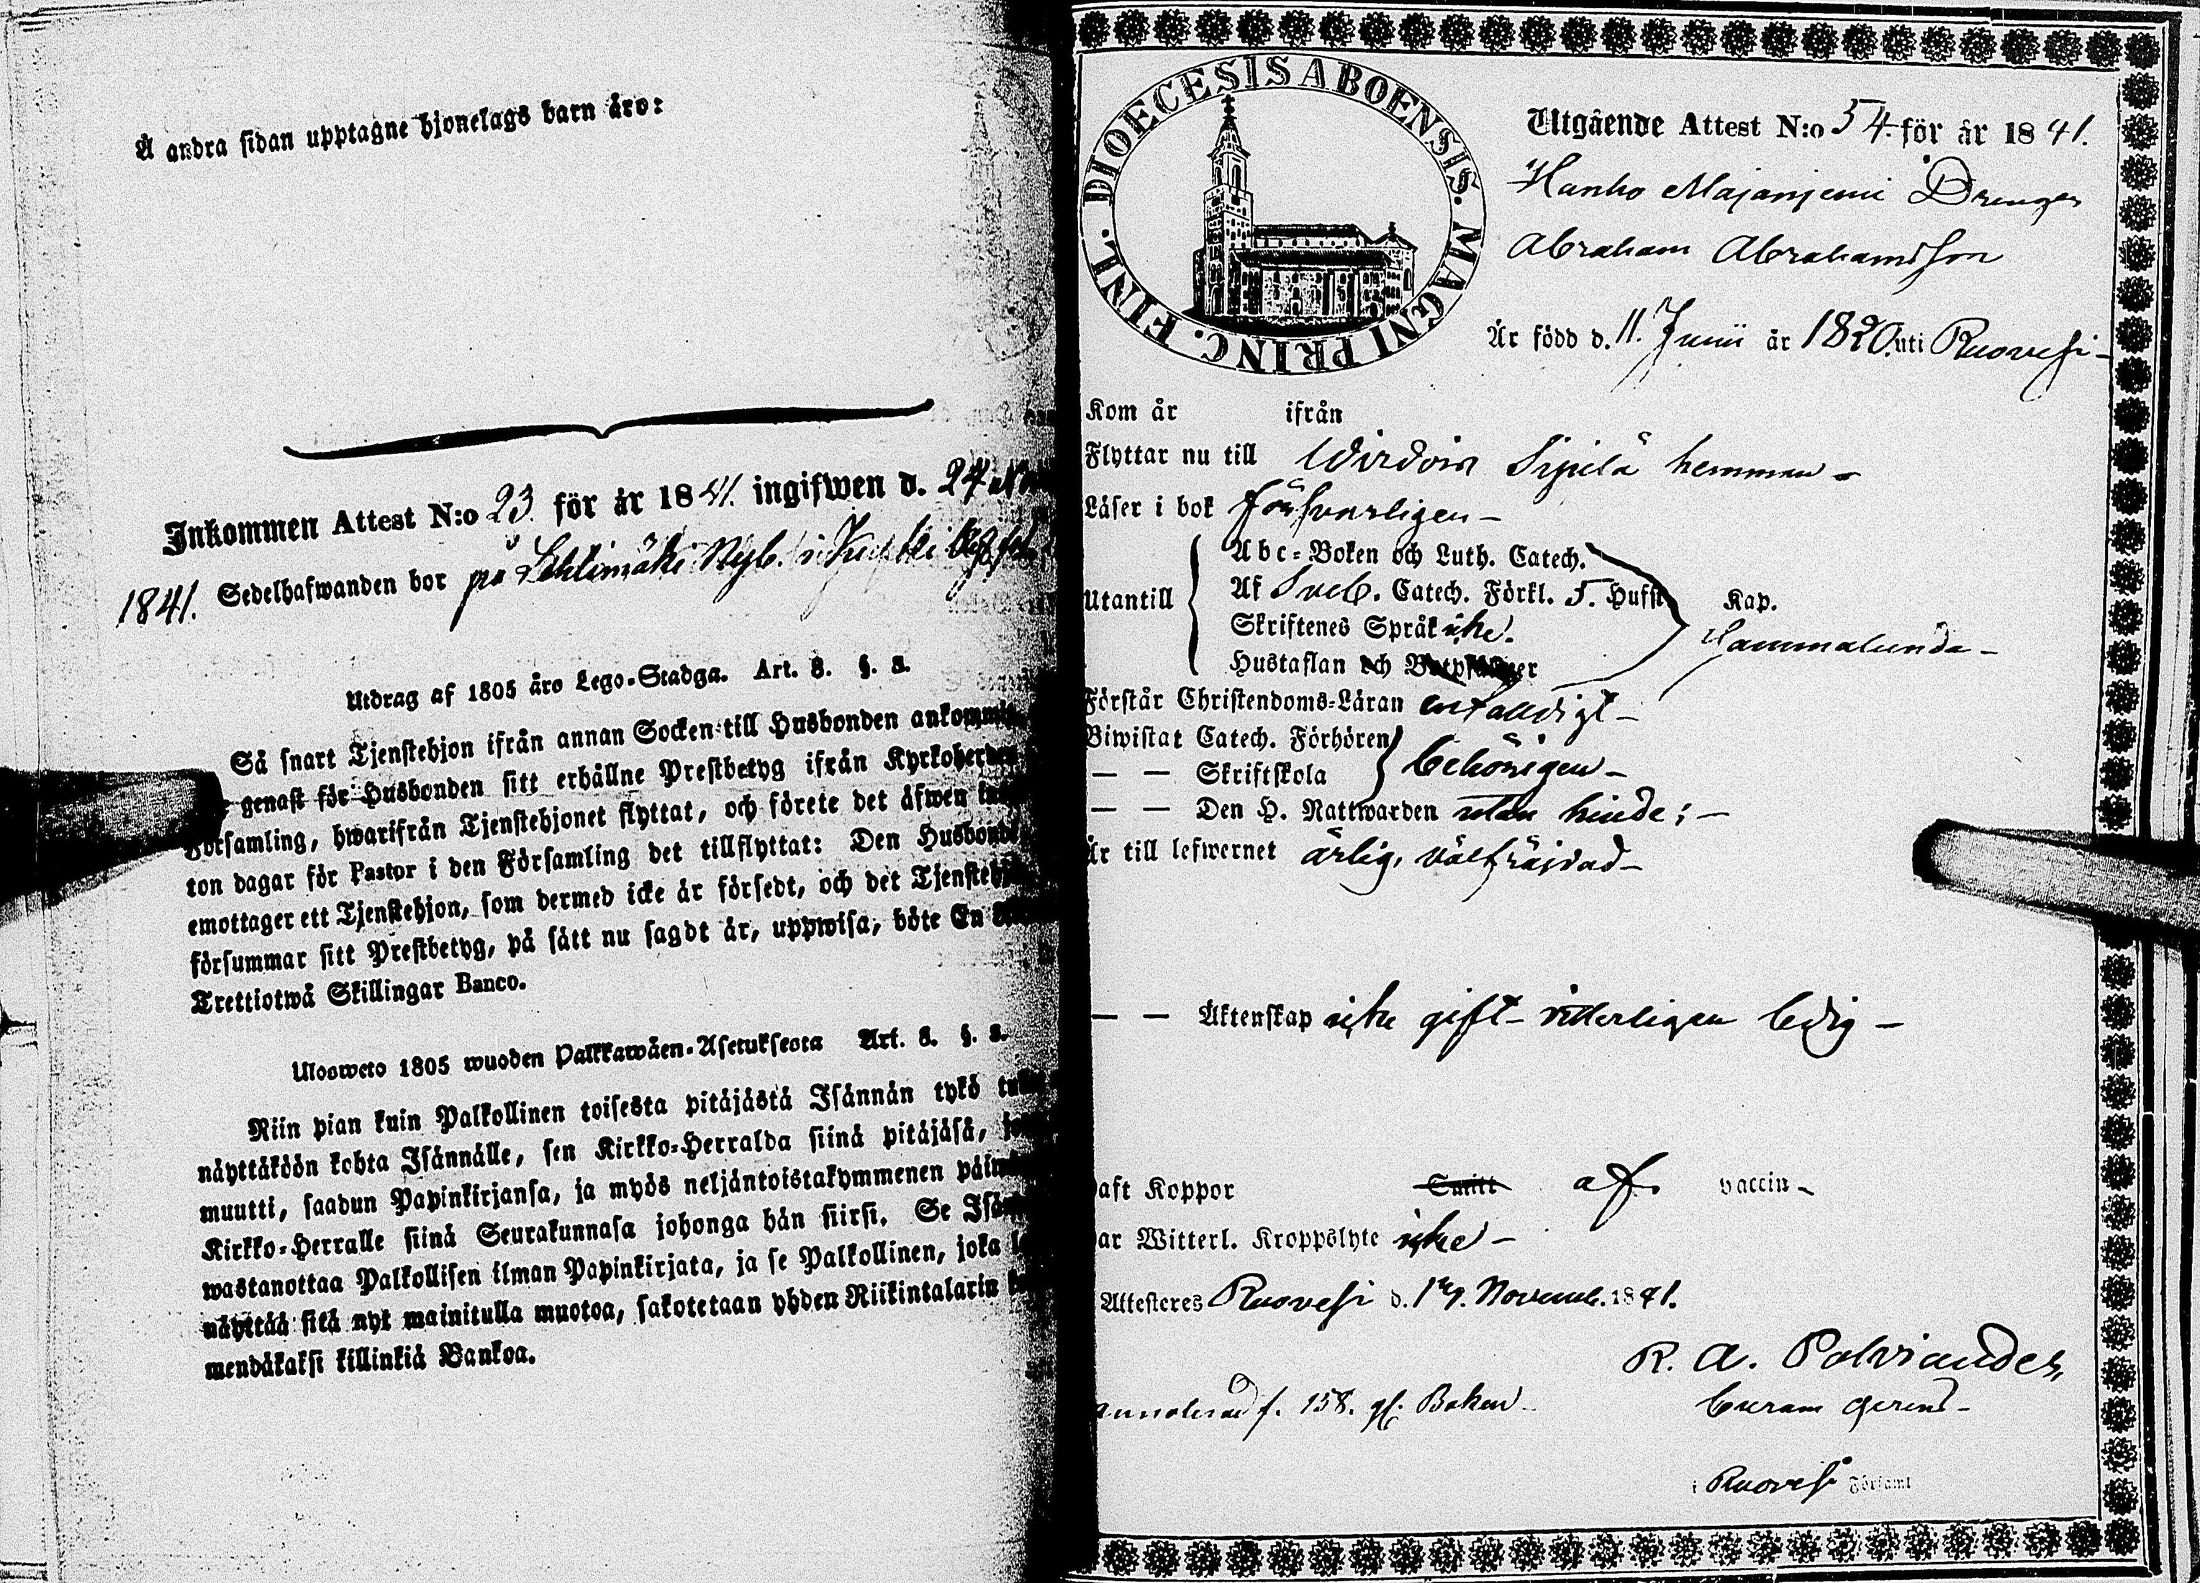 Å andra sidan upptagne hjonelags barn äro:
Inkommen Attest N:o 23. för år 1841. ingifwen d. 24
1841. Sedelhafwanden bor på Lehtimäki Nyb. i
Utdrag af 1805 års Lego-Stadga. Art. 8. §. 2.
Så snart Tjenstehjon ifrån annan Socken till Husbonden
genast för Husbonden sitt erhållne Prestbetyg ifrån
Församling, hwarifrån Tjenstehjonet flyttat, och förete det äfwen
ton dagar för Pastor i den Församling det tillflyttat: Den
emottager ett Tjenstehjon, som dermed icke är försedt, och det
försummar sitt Prestbetyg, på sätt nu sagdt är, uppwisa, böte En
Trettiotwå Skillingar Banco.
Uloosweto 1805 wuoden Palkkawäen-Asetuksesta Art. 8. §. 2.
Niin pian kuin Palkollinen toisesta pitäjästä Isännän tykö
näyttäköön kohta Isännälle, sen Kirkko-Herralda siinä pitäjäsä,
muutti, saadun Papinkirjansa, ja myös neljäntoistakymmenen
Kirkko-Herralle siinä Seurakunnasa johonga hän siirsi. Se
wastanottaa Palkollisen ilman Papinkirjata, ja se Palkollinen, joka
näyttää sitä nyt mainitulla muotoa, sakotetaan yhden Riikintalarin
mendäkaksi killinkiä Bankoa.
DIOECESIS ABOENSIS. MAGNI PRINC. FINL.
Utgående Attest N:o 54. för år 1841.
Hanho Majanjemi Drengen
Abraham Abrahamsson
Är född d. 11. Junii år 1820. uti Ruovesi
Kom år ifrån
Flyttar nu till Wirdois Sipilä hemman
Läser i bok försvarligen
Utantill
Abc-Boken och Luth. Catech.
Af Sveb. Catech. Förkl. 5. Hufst
Kap.
Skriftenes Språk icke.
Sammalunda
Hustaflan och
Förstår Christendoms-Läran enfalldigt
Biwistat Catech. Förhören
— — Skriftskola
behörigen
— — Den H. Nattwarden utan hinder;
Är till lefwernet ärlig, välfräjdad
— — Äktenskap icke gift vitterligen ledig
haft Koppor Smitt af vaccin
har Witterl. Kroppslyte icke
Attesteres Ruovesi d. 19. Novemb. 1841.
R. A. Polviander,
Curam gerens
annoterad f. 158. gl. Boken
i Ruovesi Församl